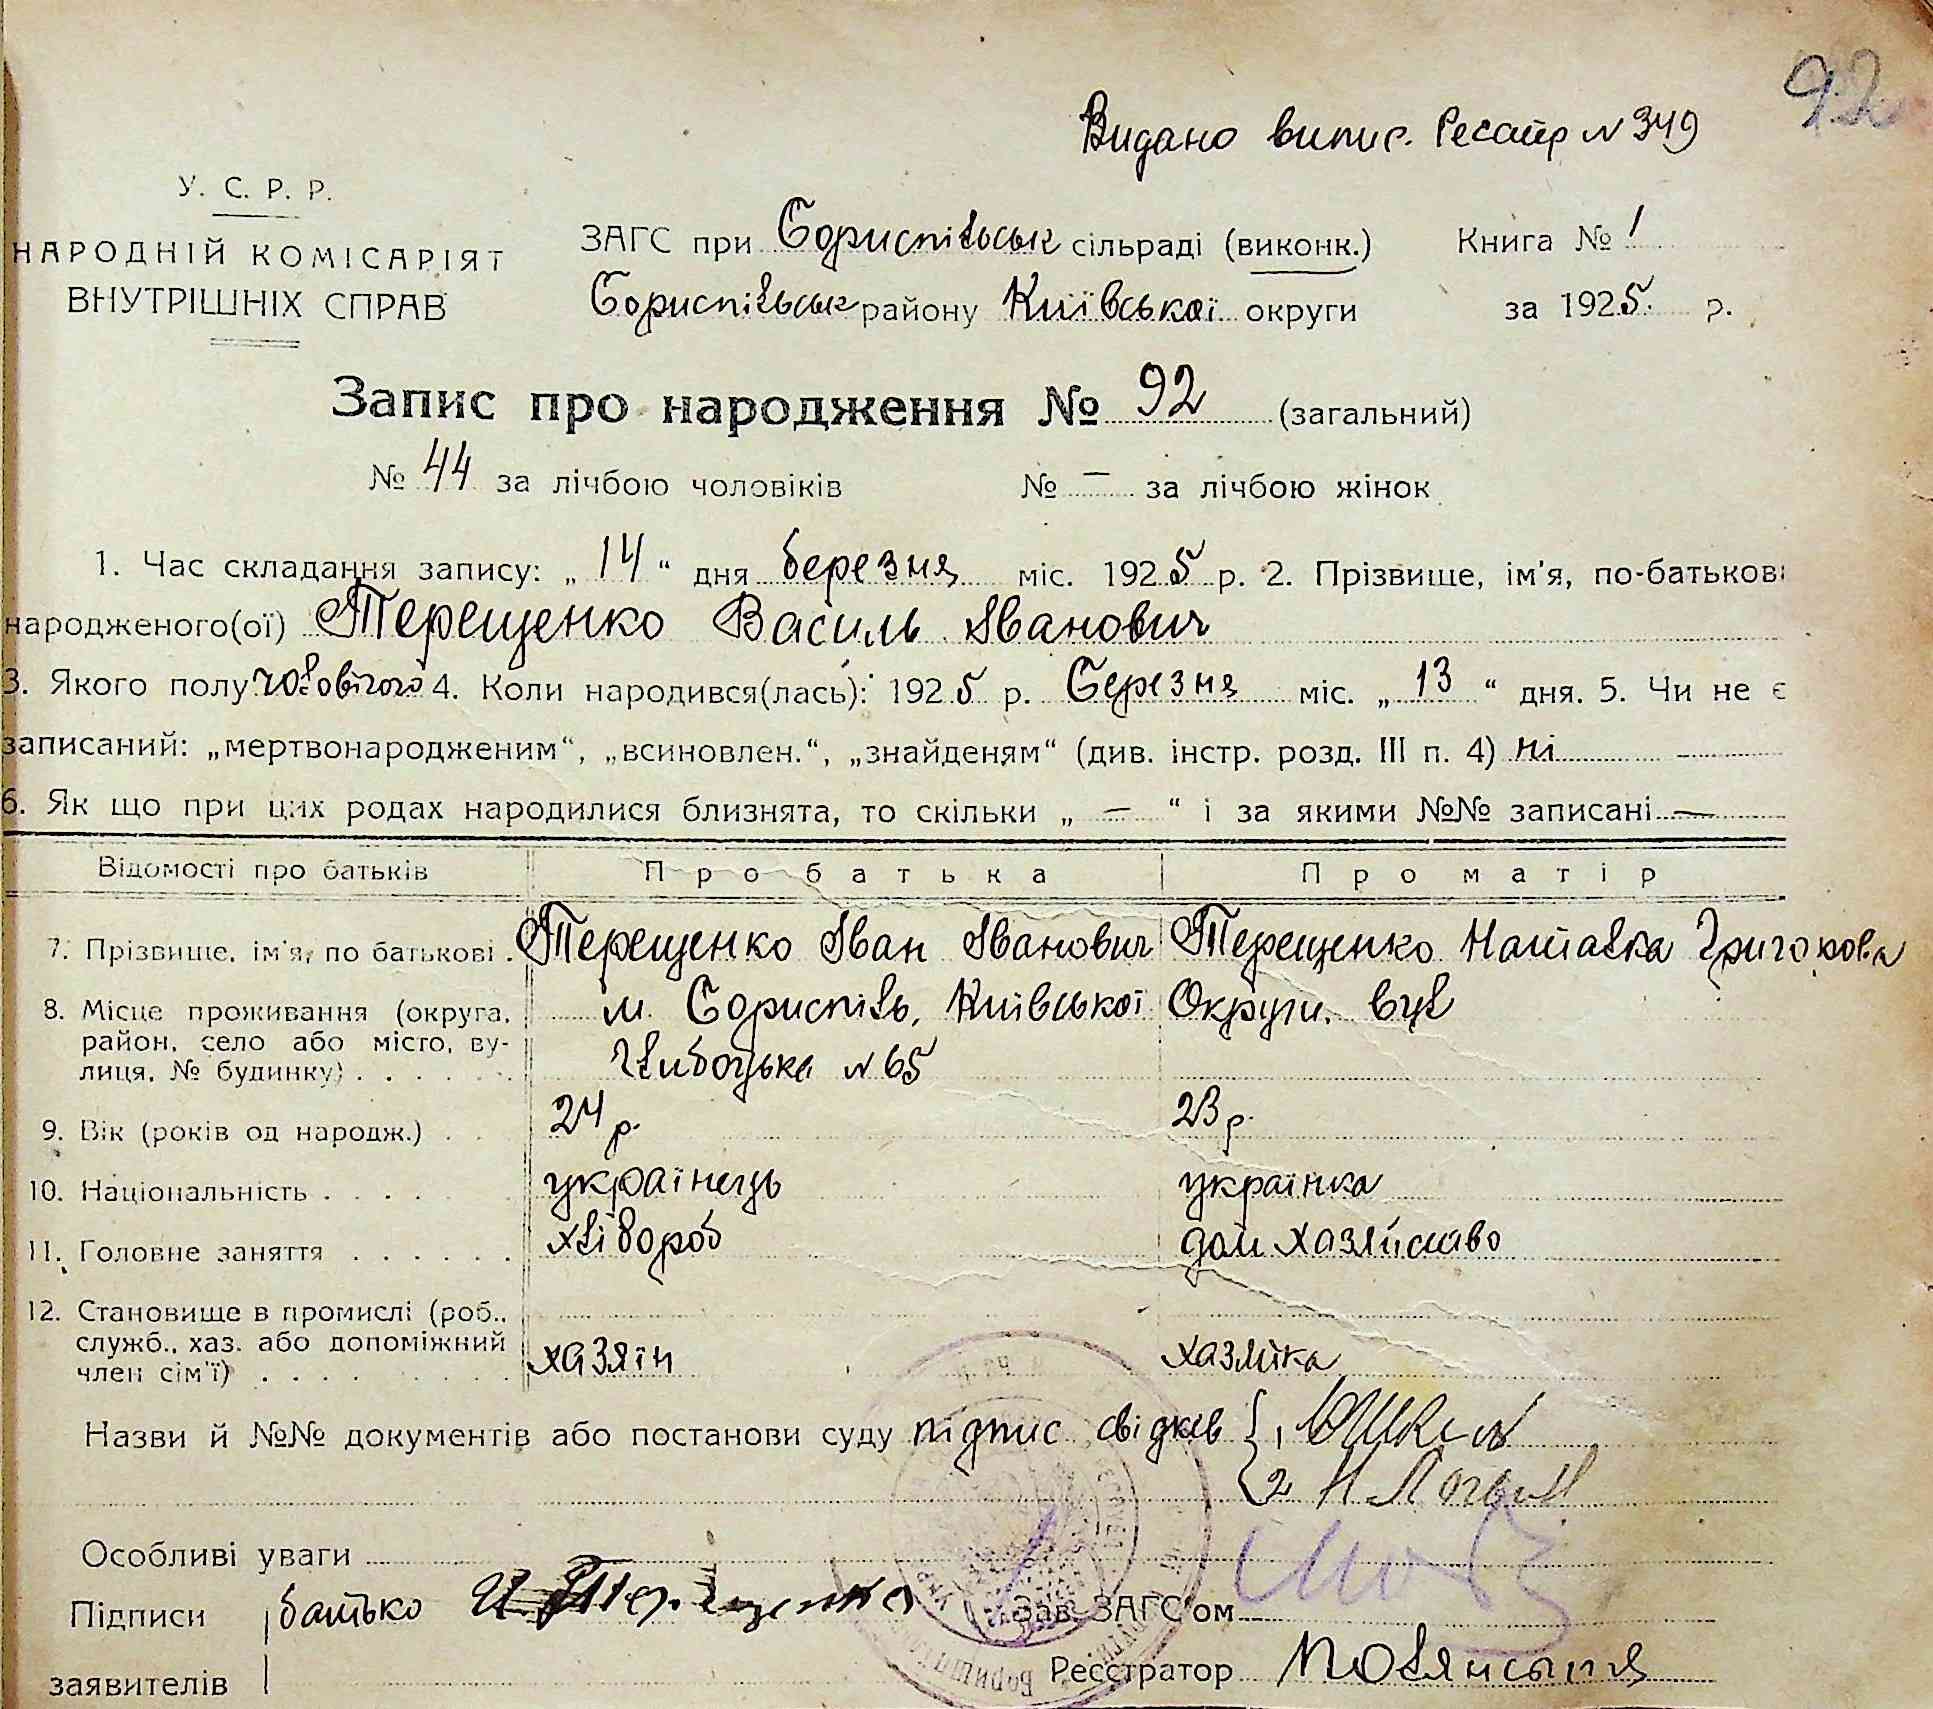 92
Видано випис. Реєстр N 349
У. С. Р. Р.
НАРОДНІЙ КОМІСАРІЯТ
ВНУТРІШНІХ СПРАВ
ЗАГС при Бориспільськ сільраді (виконк.) Книга № 1
Бориспільськ району Київської округи за 1925 р.
Запис про народження № 92 (загальний)
№ 44 за лічбою чоловіків № — за лічбою жінок
1. Час складання запису: „ 14 “ дня березня міс. 1925 р. 2. Прізвище, ім'я, по-батькові
народженого(ої) Терещенко Василь Іванович
3. Якого полу чоловічого 4. Коли народився(лась): 1925 р. Березня міс. „ 13 “ дня. 5. Чи не є
записаний: „мертвонародженим“, „всиновлен.“, „знайденям“ (див. інстр. розд. III п. 4) ні
6. Як що при цих родах народилися близнята, то скільки „ — “ і за якими №№ записані —
Відомості про батьків Про батька Про матір
7. Прізвище, ім'я, по батькові . Терещенко Іван Іванович Терещенко Наталка Григорова
8. Місце проживання (округа, м. Бориспіль, Київської Округи, вул
район, село або місто, ву-
лиця, № будинку) . . . . . . Глибоцька N 65
9. Вік (років од народж.) . . 24 р. 23 р.
10. Національність . . . . . українець українка
11. Головне заняття . . . . . . хлібороб дом. хазяйство
12. Становище в промислі (роб.,
служб., хаз. або допоміжний
член сім'ї) . . . . . . . . . хазяїн хазяйка
Назви й №№ документів або постанови суду підпис свідків { 1
2 Н
Особливі уваги
Підписи батько И. Терещенко Зав. ЗАГС'ом
заявителів Реєстратор